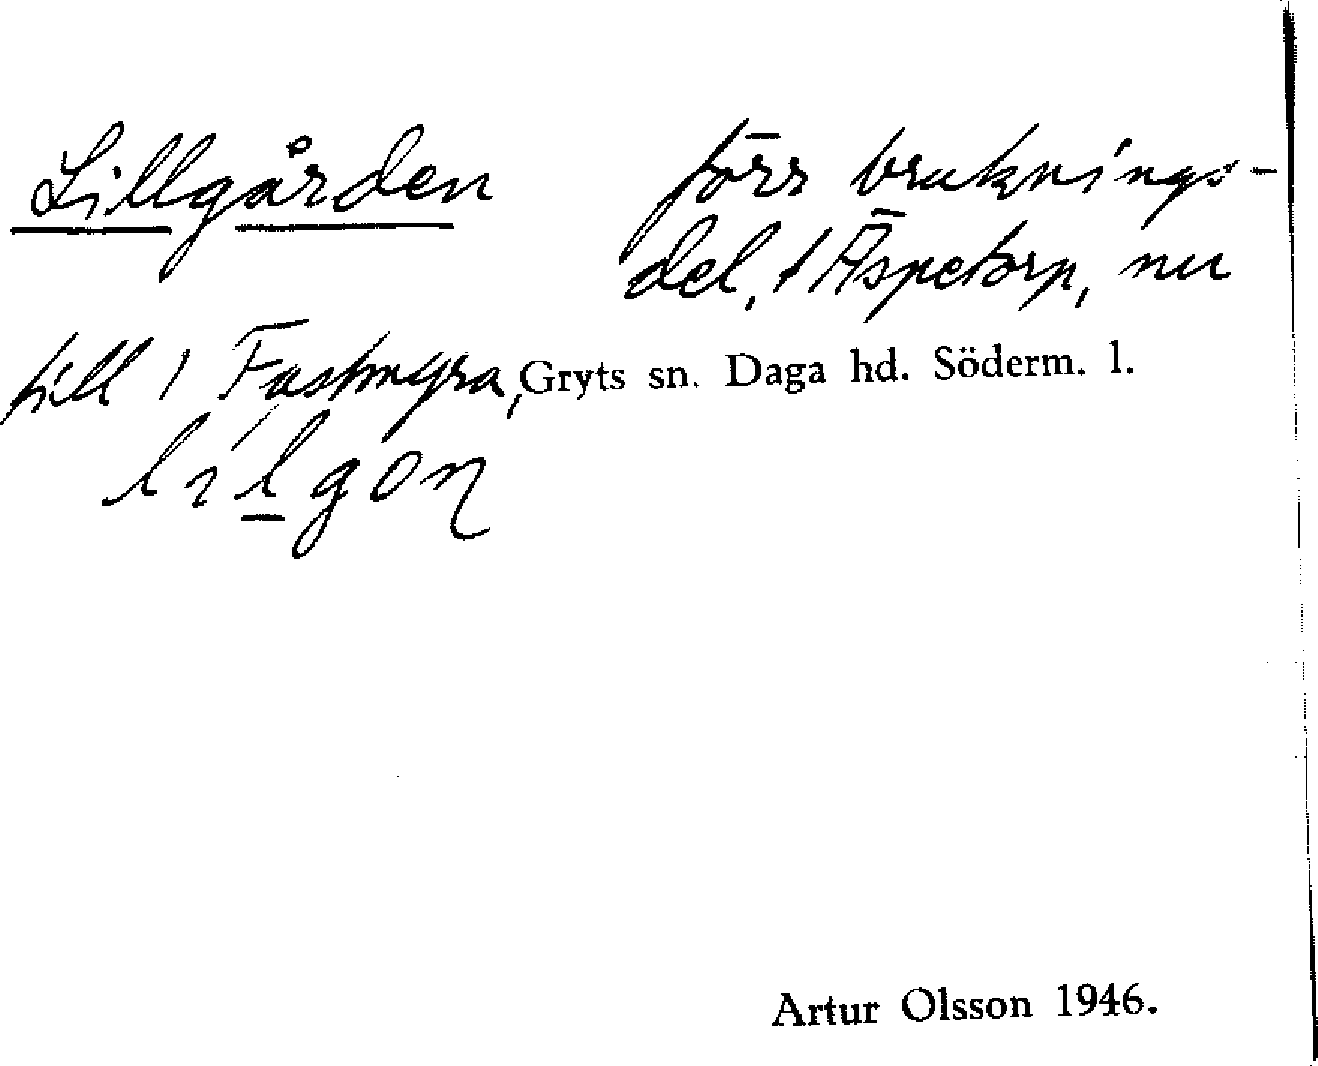 Lillgården förr bruknings-
del, 1 Äspetorp, nu
till 1 Fastmyra, Gryts sn. Daga hd. Söderm. l.
lílgon
Artur Olsson 1946.